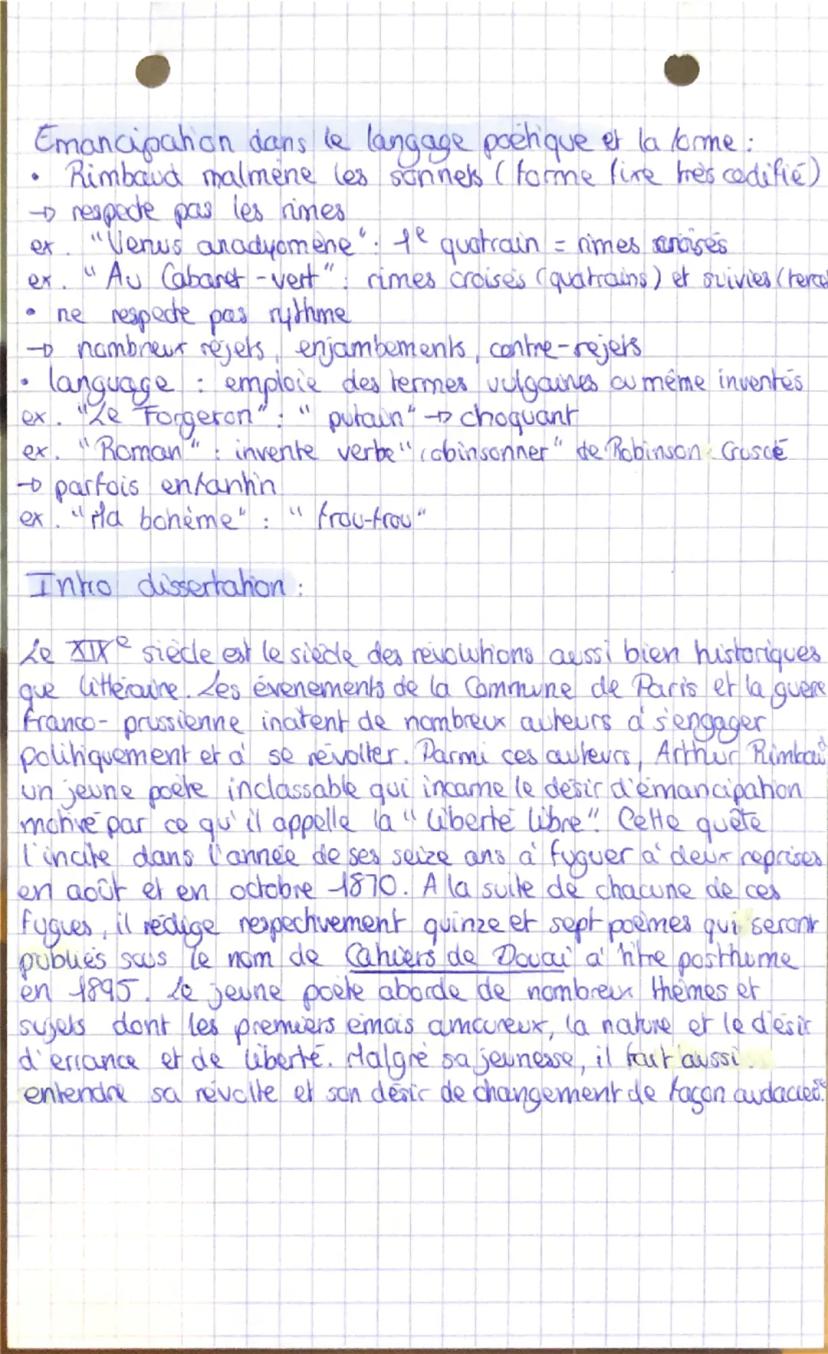 Emancipation dans le langage poétique et la forme :
• Rimbaud malmène les sonnets (forme fixe très codifié)
→ respecte pas les rimes
ex. "Venus anadyomène" : 1e quatrain = rimes croisés
ex. "Au Cabaret-vert" : rimes croisés (quatrains) et suivies (terce
• ne respecte pas rythme
→ nombreux rejets, enjambements, contre-rejets
• language : emploie des termes vulgaires ou même inventés
ex. "Le Forgeron" : "putain" → choquant
ex. "Roman" : invente verbe "robinsonner" de Robinson Crusoé
→ parfois enfantin
ex. "Ma bohème" : "frou-frou"
Intro dissertation :
Le XIXe siècle est le siècle des révolutions aussi bien historiques
que littéraire. Les évenements de la Commune de Paris et la guerre
Franco-prussienne incitent de nombreux auteurs à s'engager
politiquement et à se révolter. Parmi ces auteurs, Arthur Rimbaud
un jeune poète inclassable qui incarne le désir d'émancipation
motivé par ce qu'il appelle la "liberté libre". Cette quête
l'incite dans l'année de ses seize ans à fuguer à deux reprises
en août et en octobre 1870. A la suite de chacune de ces
fugues, il rédige respectivement quinze et sept poèmes qui seront
publiés sous le nom de Cahiers de Douai à titre posthume
en 1895. Le jeune poète aborde de nombreux thèmes et
sujets dont les premiers émois amoureux, la nature et le désir
d'errance et de liberté. Malgré sa jeunesse, il fait aussi
entendre sa révolte et son désir de changement de façon